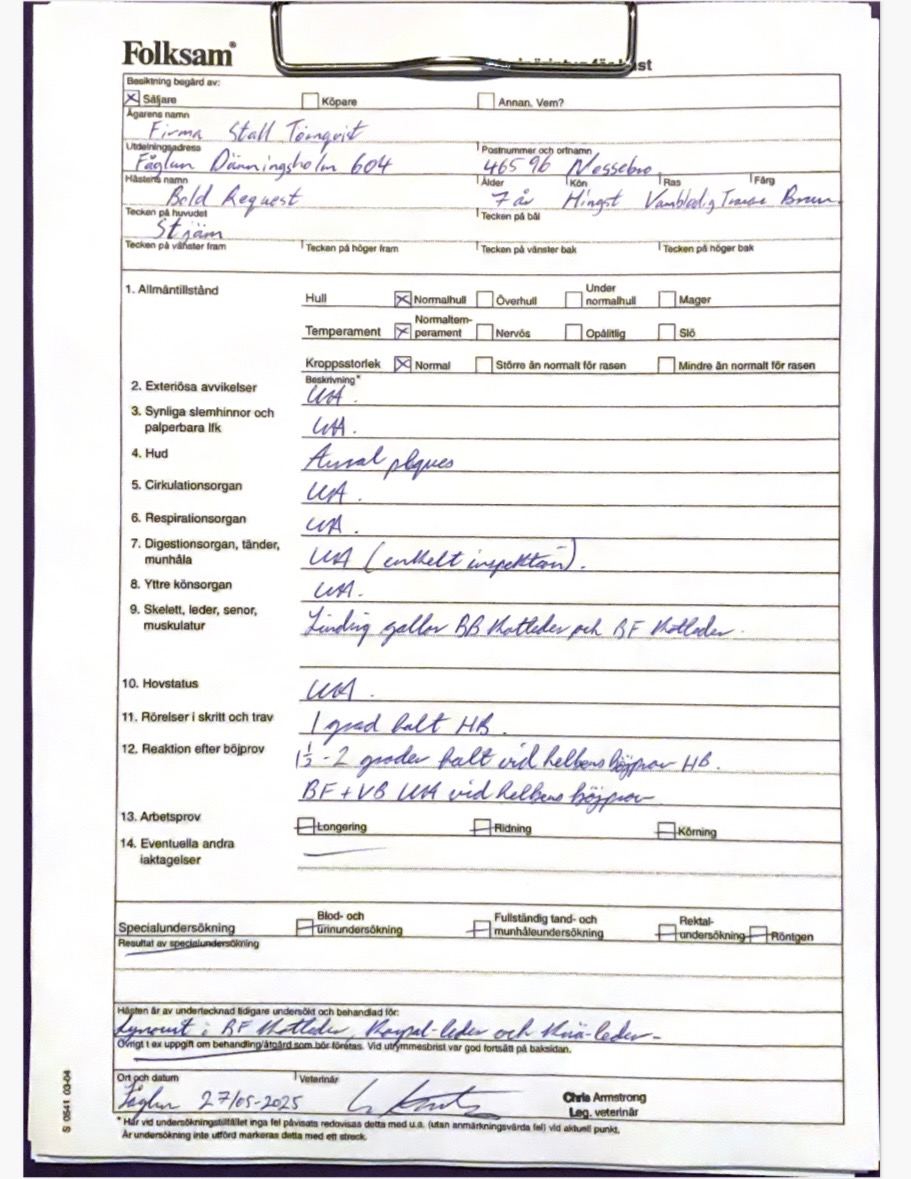 Folksam®
Besiktning begärd av:
Säljare Köpare Annan. Vem?
Ägarens namn
Firma Stall Törnqvist
Utdelningsadress Postnummer och ortnamn
Fåglun Dänningsholm 604 465 96 Nossebro
Hästens namn Ålder Kön Ras Färg
Bold Request 7 år Hingst Varmblodig Travare Brun
Tecken på huvudet Tecken på bål
Stjärn
Tecken på vänster fram Tecken på höger fram Tecken på vänster bak Tecken på höger bak
1. Allmäntillstånd Hull Normalhull Överhull Under normalhull Mager
Temperament Normaltem-perament Nervös Opålitlig Slö
Kroppsstorlek Normal Större än normalt för rasen Mindre än normalt för rasen
Beskrivning*
2. Exteriösa avvikelser UA.
3. Synliga slemhinnor och
palperbara lfk UA.
4. Hud Aural plques
5. Cirkulationsorgan UA.
6. Respirationsorgan UA.
7. Digestionsorgan, tänder,
munhåla UA (enkelt inspektion).
8. Yttre könsorgan UA.
9. Skelett, leder, senor,
muskulatur Lindrig gallor BB Kotleder och BF Kotleder.
10. Hovstatus UA.
11. Rörelser i skritt och trav 1 grad halt HB.
12. Reaktion efter böjprov 1½-2 grader halt vid helbens böjprov HB.
BF + VB UA vid helbens böjprov
13. Arbetsprov Longering Ridning Körning
14. Eventuella andra
iaktagelser
Specialundersökning Blod- och urinundersökning Fullständig tand- och munhåleundersökning Rektal-undersökning Röntgen
Resultat av specialundersökning
Hästen är av undertecknad tidigare undersökt och behandlad för:
i BF Kotleder, Karpal-leder och Knä-leder-
Övrigt t ex uppgift om behandling/åtgärd som bör företas. Vid utrymmesbrist var god fortsätt på baksidan.
Ort och datum Veterinär
Fåglun 27/05-2025 Chris Armstrong
Leg. veterinär
* Har vid undersökningstillfället inga fel påvisats redovisas detta med u.a. (utan anmärkningsvärda fel) vid aktuell punkt.
Är undersökning inte utförd markeras detta med ett streck.
S 0541 03-04